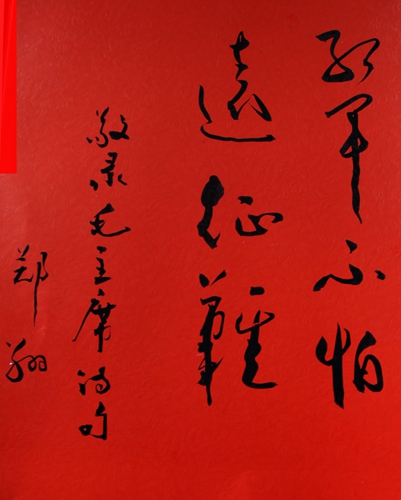 红军不怕
远征难
敬录毛主席诗句
郑翔